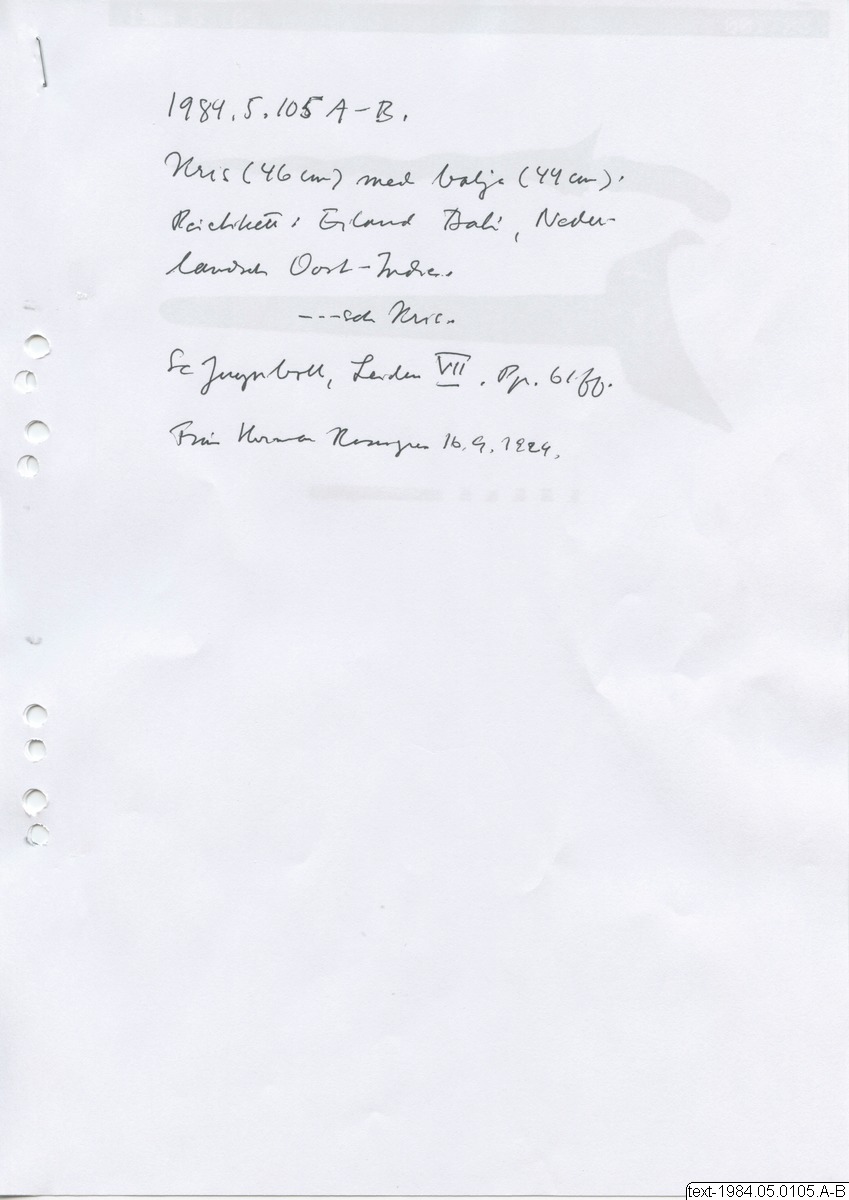 1984.5.105 A-B.
Kris (46 cm) med balja (44 cm).
Eiland Bali, Neder-
landsch Oost-Indie.
---sch Kris.
Se Juynboll, Leiden VII. Pp. 61ff.
Från Herman 16.9.1929.
text-1984.05.0105.A-B